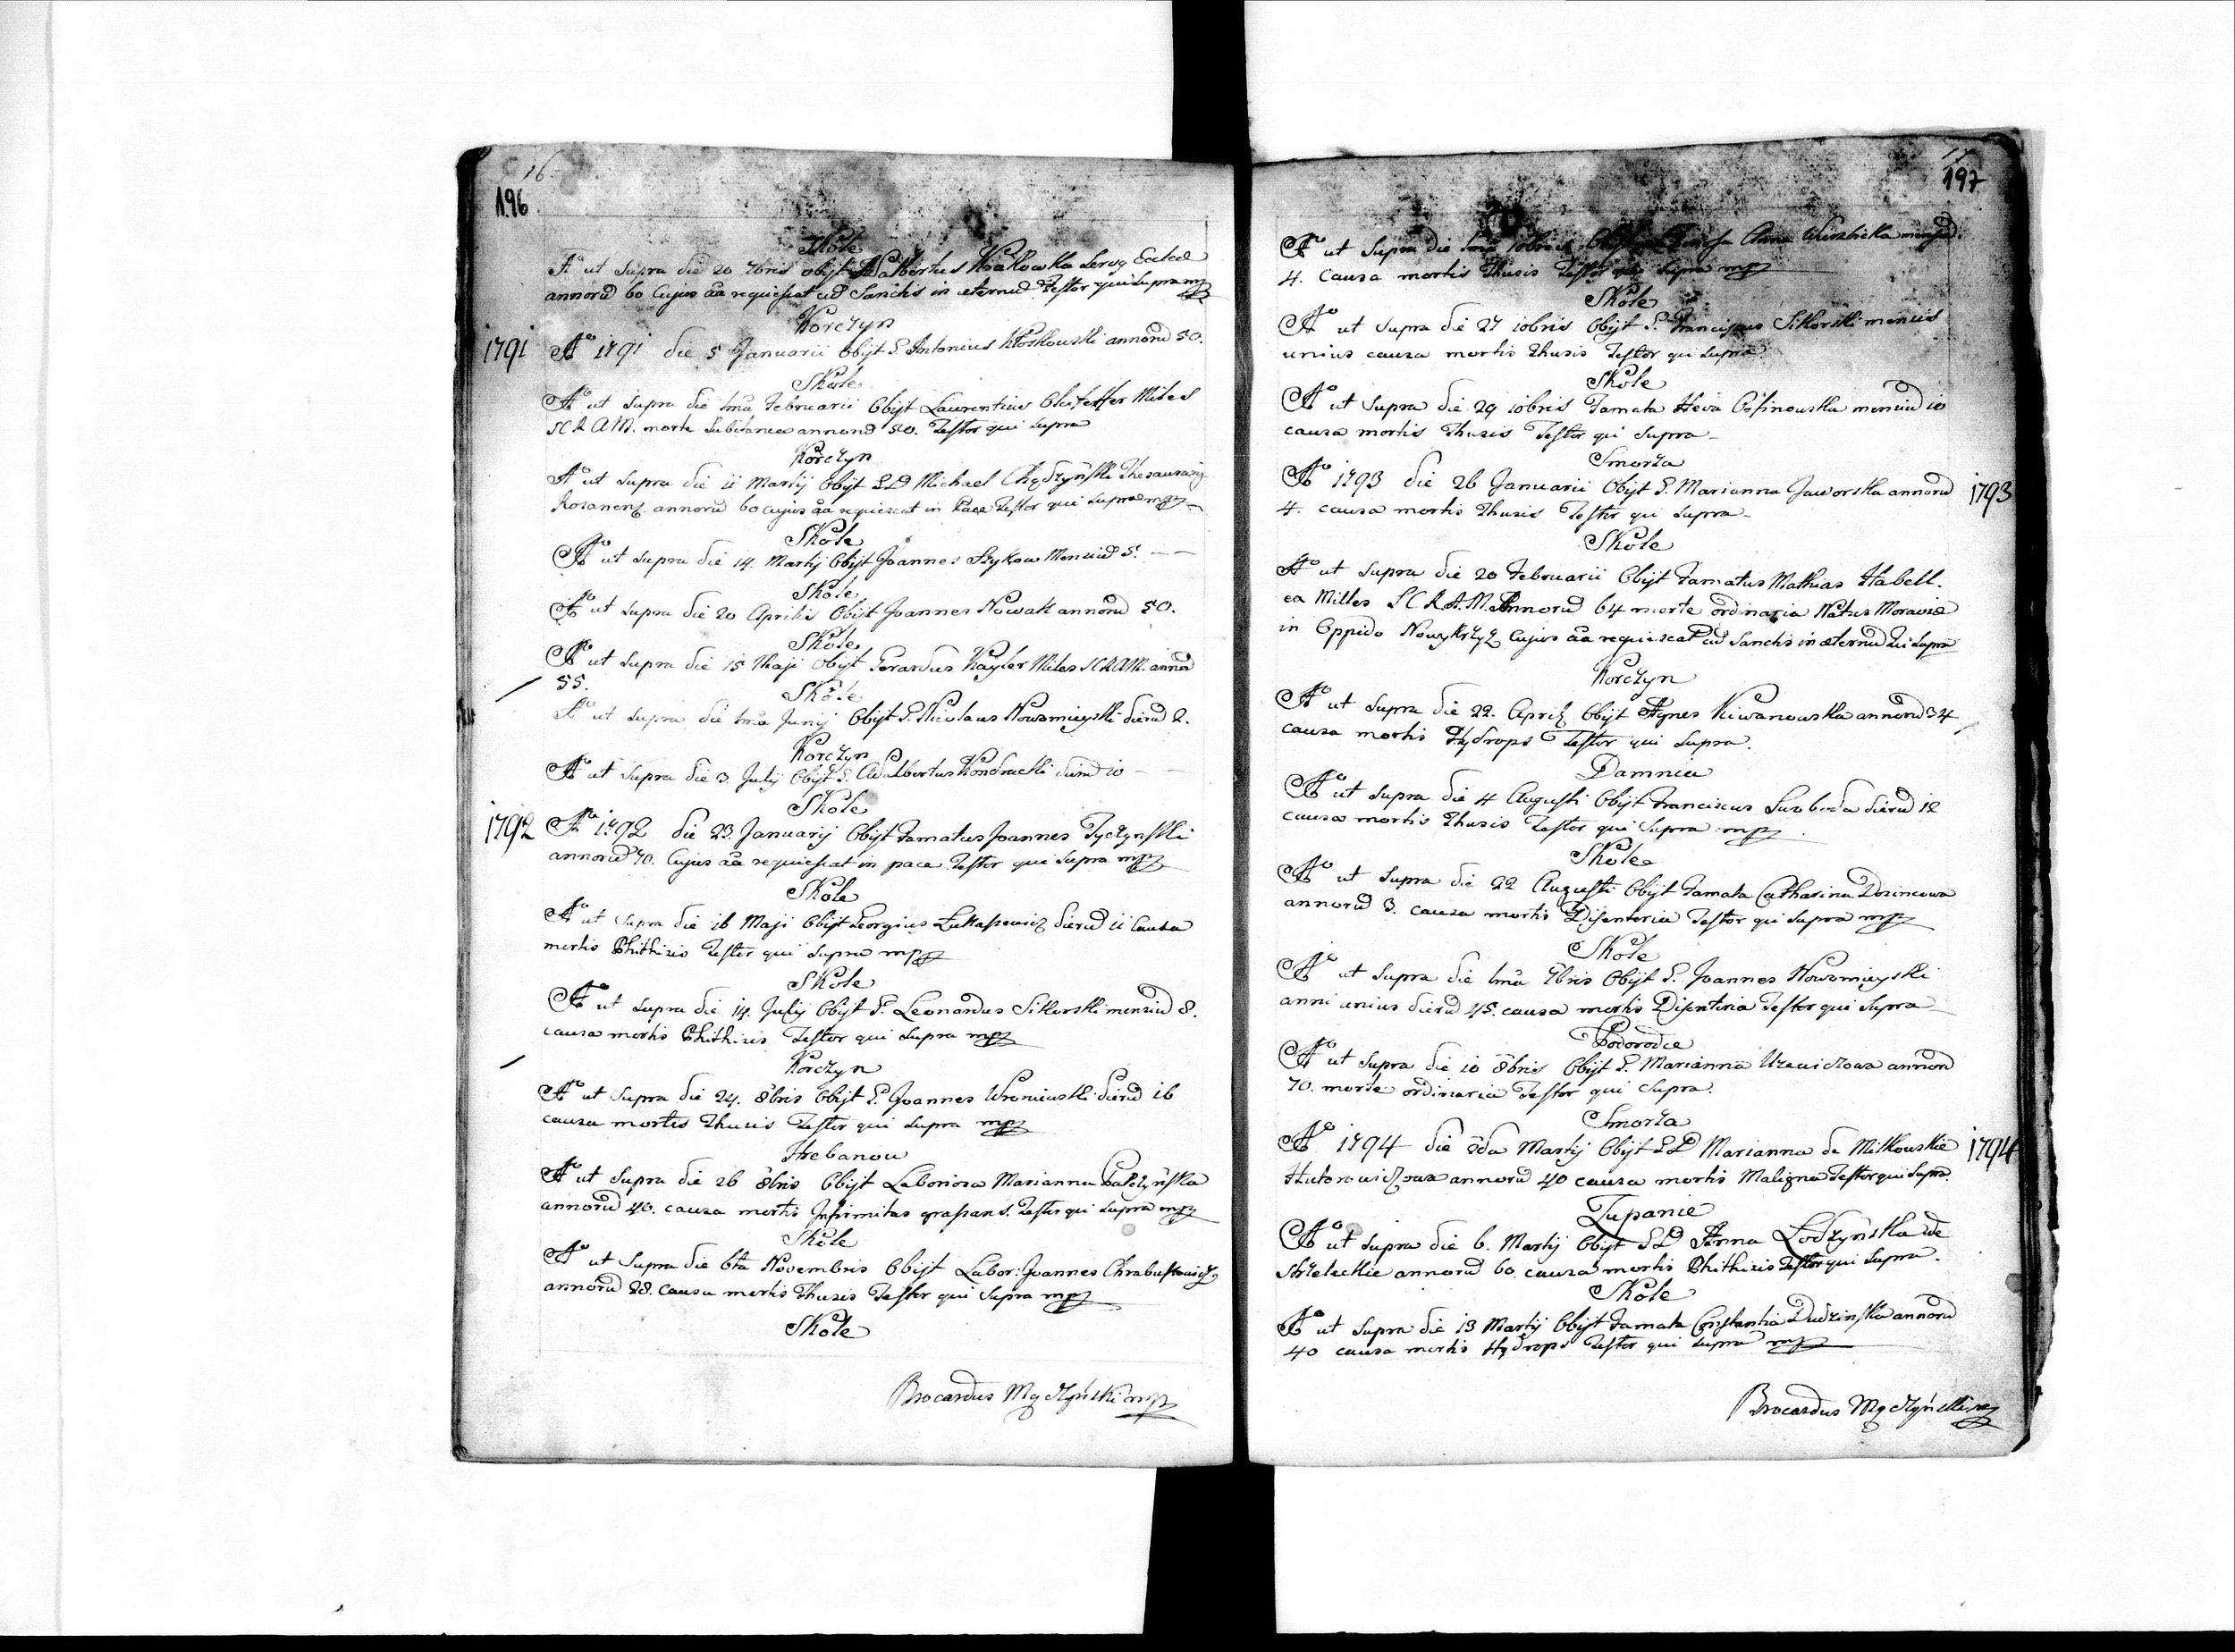 16
196
Skole
Aº ut Supra die 20 7bris obijt Adalbertus Krakowka Servq Eccl
annorū 60 Cujus āā requiescat cū Sanctis in eternū Testor qui Supra mp
Korczyn
1791 Aº 1791 die 5 Januarii Obijt G. Antonius Kłoskowski annorū 50.
Skole
Aº ut Supra die 1mā Februarii Obijt Laurentius Miles
SCRAM. morte Subitanea annorū 50. Testor qui Supra
Korczyn
Aº ut Supra die 11 Martij Obijt GD Michael Chądzyński Thesaurarij
Rosanens. annorū 60 cujus āā requiescat in Pace Testor qui Supra mp
Skole
Aº ut Supra die 14. Martij Obijt Joannes Szykow Mensiū 5.
Skole
Aº ut Supra die 20 Aprilis Obijt Joannes Nowak annorū 50.
Skole
Aº ut Supra die 15 Maji Obijt Gerardus Kayler Miles SCRAM. annorū
55.
Skole
Aº ut Supra die 1mā Junij Obijt G. Nicolaus Nowomieyski dierū 2.
Korczyn
Aº ut Supra die 3 Julij Obijt G. Adalbertus Kondracki dierū 10
Skole
1792 Aº 1792 die 23. Januarij Obijt Famatus Joannes Tyczynski
annorū 70. Cujus āā requiescat in pace Testor qui Supra mp
Skole
Aº ut Supra die 16 Maji Obijt Georgius Łukasiewicz dierū 11 Causa
mortis Phithisis Testor qui Supra mp
Skole
Aº ut Supra die 14. Julij Obijt G. Leonardus Sikorski mensiū 8.
causa mortis Phithisis Testor qui Supra mp
Korczyn
Aº ut Supra die 24. 8bris Obijt G. Joannes Wroniewski dierū 16
causa mortis Thusis Testor qui Supra mp
Hrebanow
Aº ut Supra die 26 8bris Obijt Laboriosa Marianna Gałczyńska
annorū 40. causa mortis Infirmitas grassans. Testor qui Supra mp
Skole
Aº ut Supra die 6ta Novembris Obijt Labor: Joannes
annorū 28. Causa mortis Thusis Testor qui Supra mp
Skole
Brocardus Mączyński mp
17
197
Aº ut Supra die Anna mensiū
4. Causa mortis Thusis Testor qui Supra mp
Skole
Aº ut Supra die 27 10bris Obijt G. Franciscus Sikorski mensis
unius causa mortis Thusis Testor qui Supra
Skole
Aº ut Supra die 29 10bris Famata Heva Osinowska mensiū 10
causa mortis Thusis Testor qui Supra
Smorza
Aº 1793 die 26 Januarii Obijt G. Marianna Jaworska annorū 1793
4. causa mortis Thusis Testor qui Supra
Skole
Aº ut Supra die 20 Februarii Obijt Famatus Mathias Habell.
ea Milles SCRAM. Annorū 64 morte ordinaria Natus Moraviæ
in Oppido Cujus āā requiescat cū Sanctis in æternū qui Supra
Korczyn
Aº ut Supra die 22. April Obijt Agnes Kiwanowska annorū 34
causa mortis Hydrops Testor qui Supra.
Damnia
Aº ut Supra die 4 Augusti Obijt Franciscus Swoboda dierū 12
causa mortis Thusis Testor qui Supra mp
Skole
Aº ut Supra die 22 Augusti Obijt Famata Catharina Dozincowa
annorū 3. causa mortis Disenteria Testor qui Supra mp
Skole
Aº ut Supra die 1mā 7bris Obijt G. Joannes Nowomieyski
anni unius dierū 45. causa mortis Disenteria Testor qui Supra
Podorodce
Aº ut Supra die 10 8bris Obijt G. Marianna Uzewiczowa annorū
70. morte ordinaria Testor qui Supra.
Smorza
Aº 1794 die 2da Martij Obijt GD Marianna de Mitkowskie 1794
Hutorowiczowa annorū 40 causa mortis Maligna Testor qui Supra.
Zupanie
Aº ut Supra die 6. Martij Obijt GD Anna Łodzyńska de
Strzeleckie annorū 60 causa mortis Phithisis Testor qui Supra.
Skole
Aº ut Supra die 13 Martij Obijt Famata Constantia Dudzinska annorū
40 causa mortis Hydrops Testor qui Supra mp
Brocardus Mączyński mp